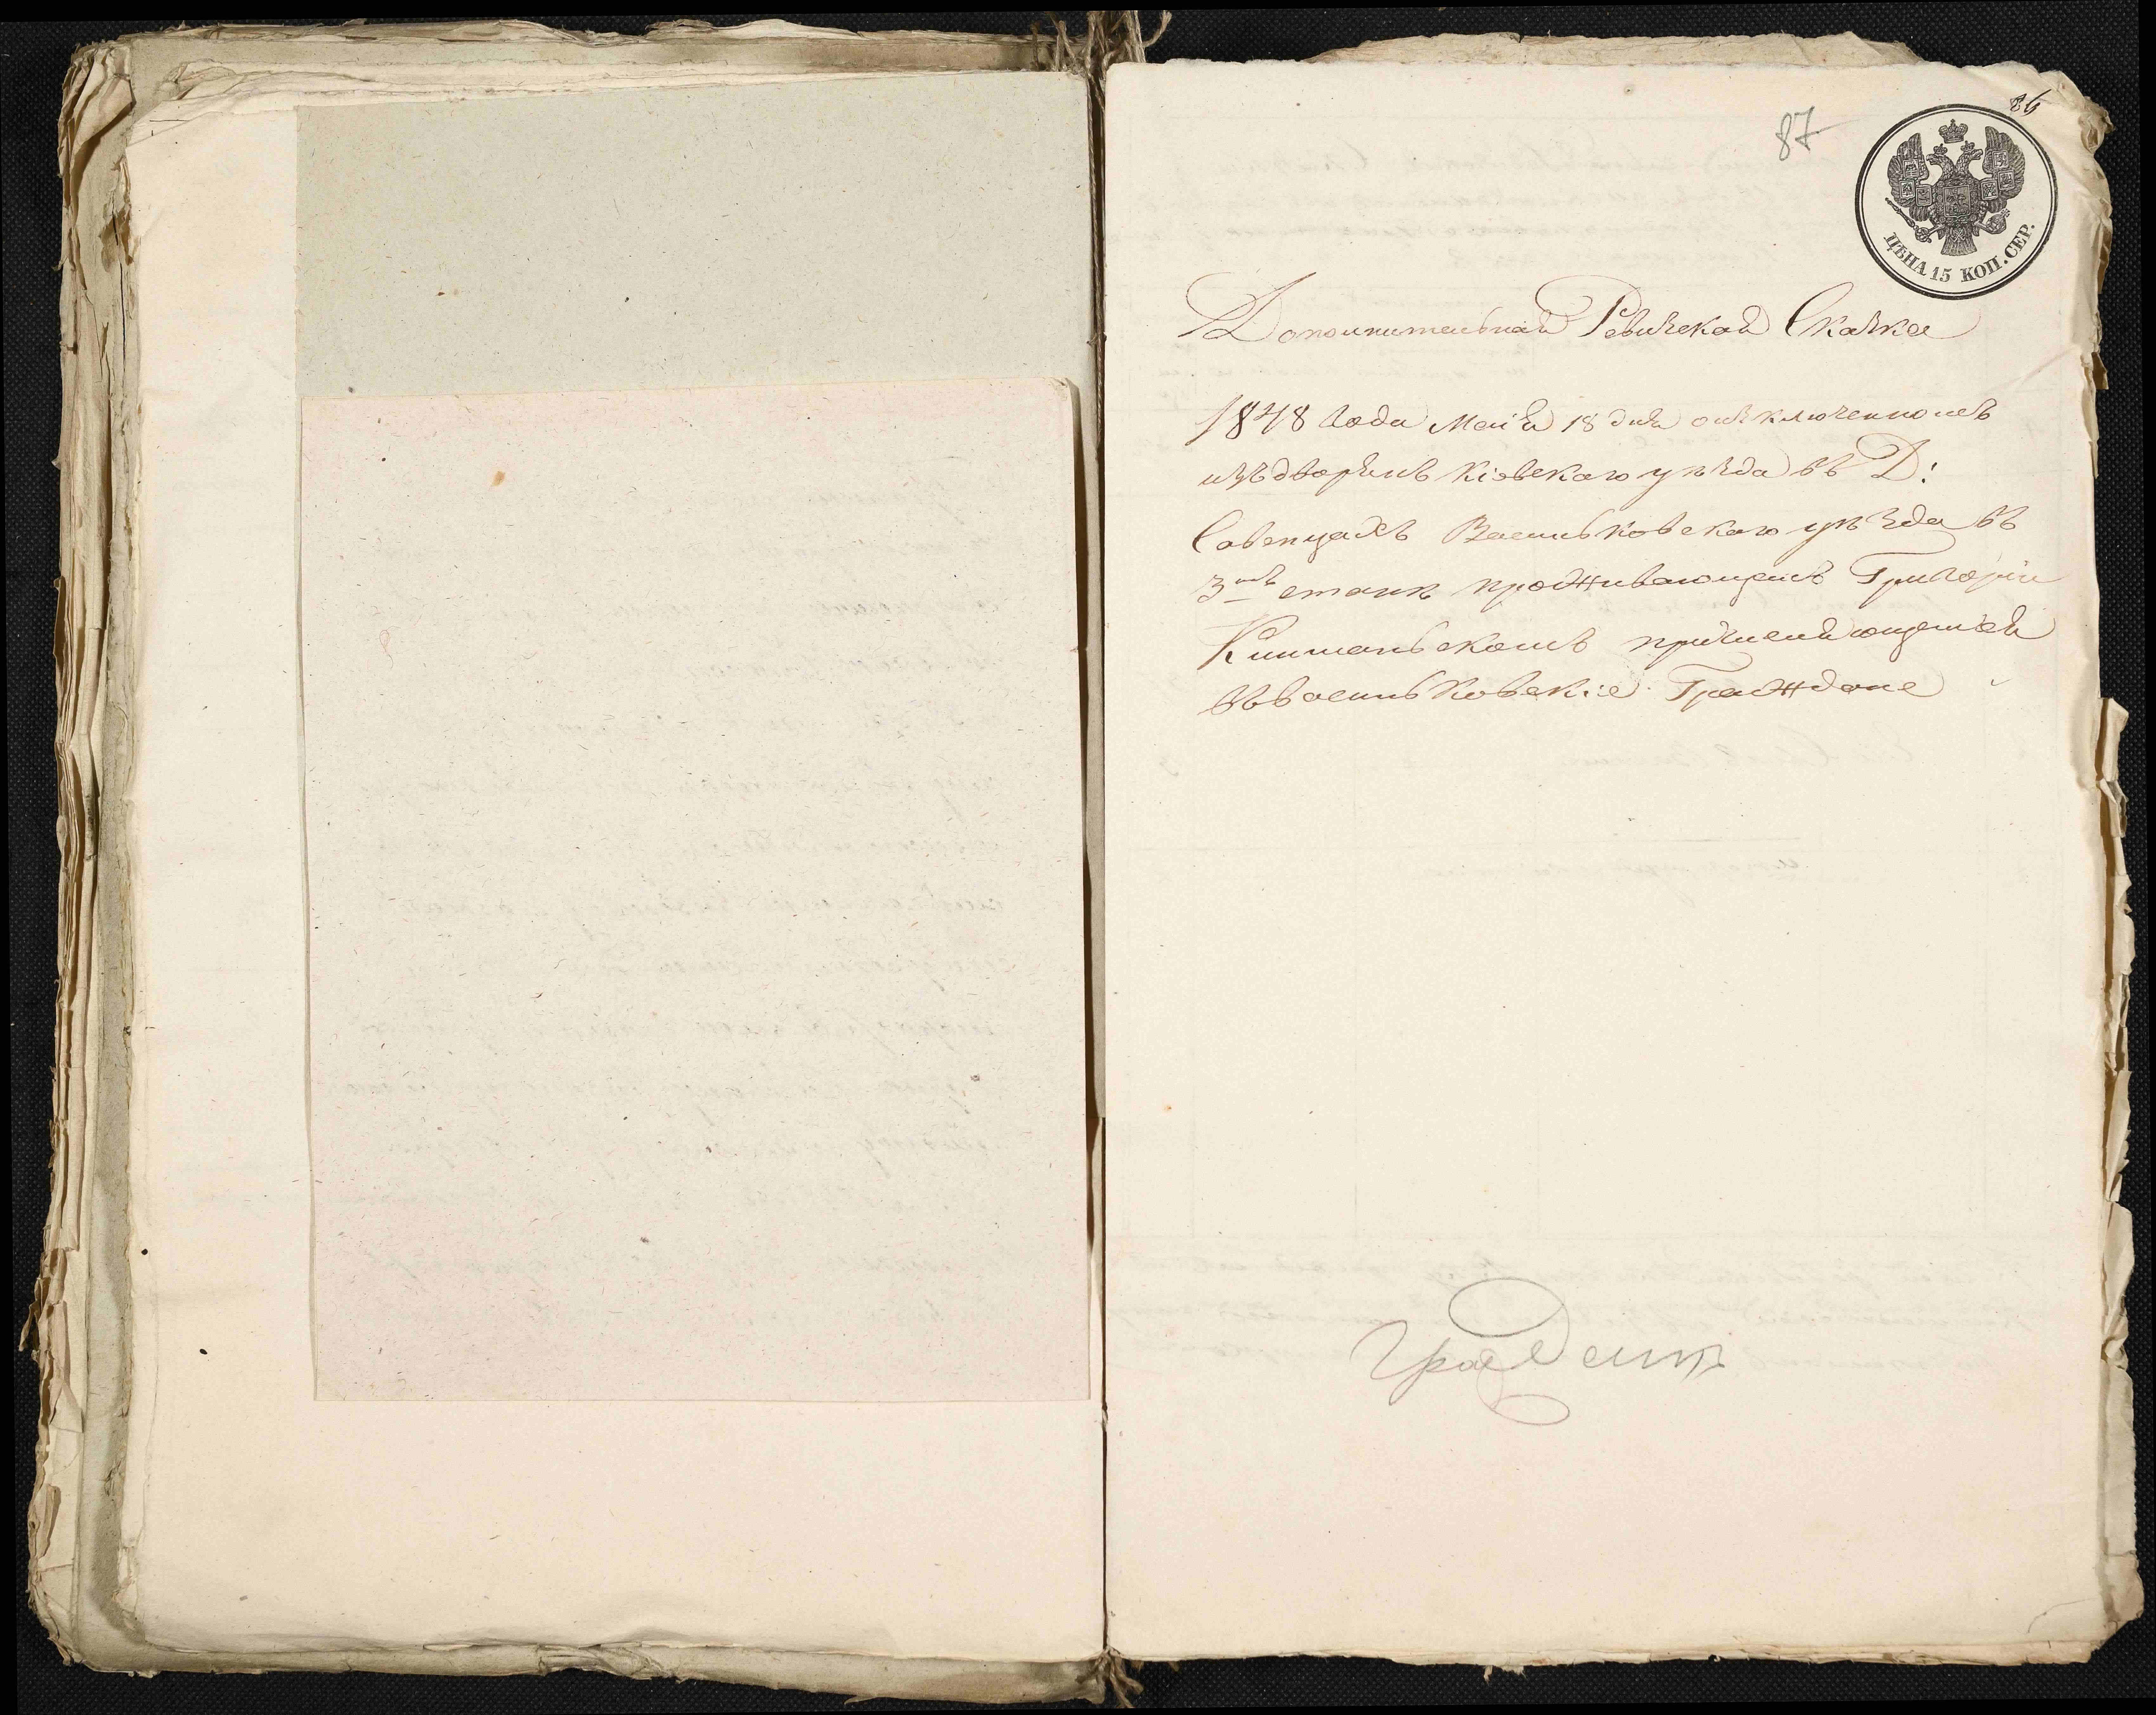 87
ЦѢНА 15 КОП. СЕР.
Дополнительная Ревизская Сказка
1848 года Маія 18 дня о изключенномъ
изъ дворянъ Кіевскаго уѣзда въ Д:
Савенцахъ Васильковскаго уѣзда въ
3мъ станѣ проживающемъ Григоріи
причисляющемся
въ Васильковскіе Граждане